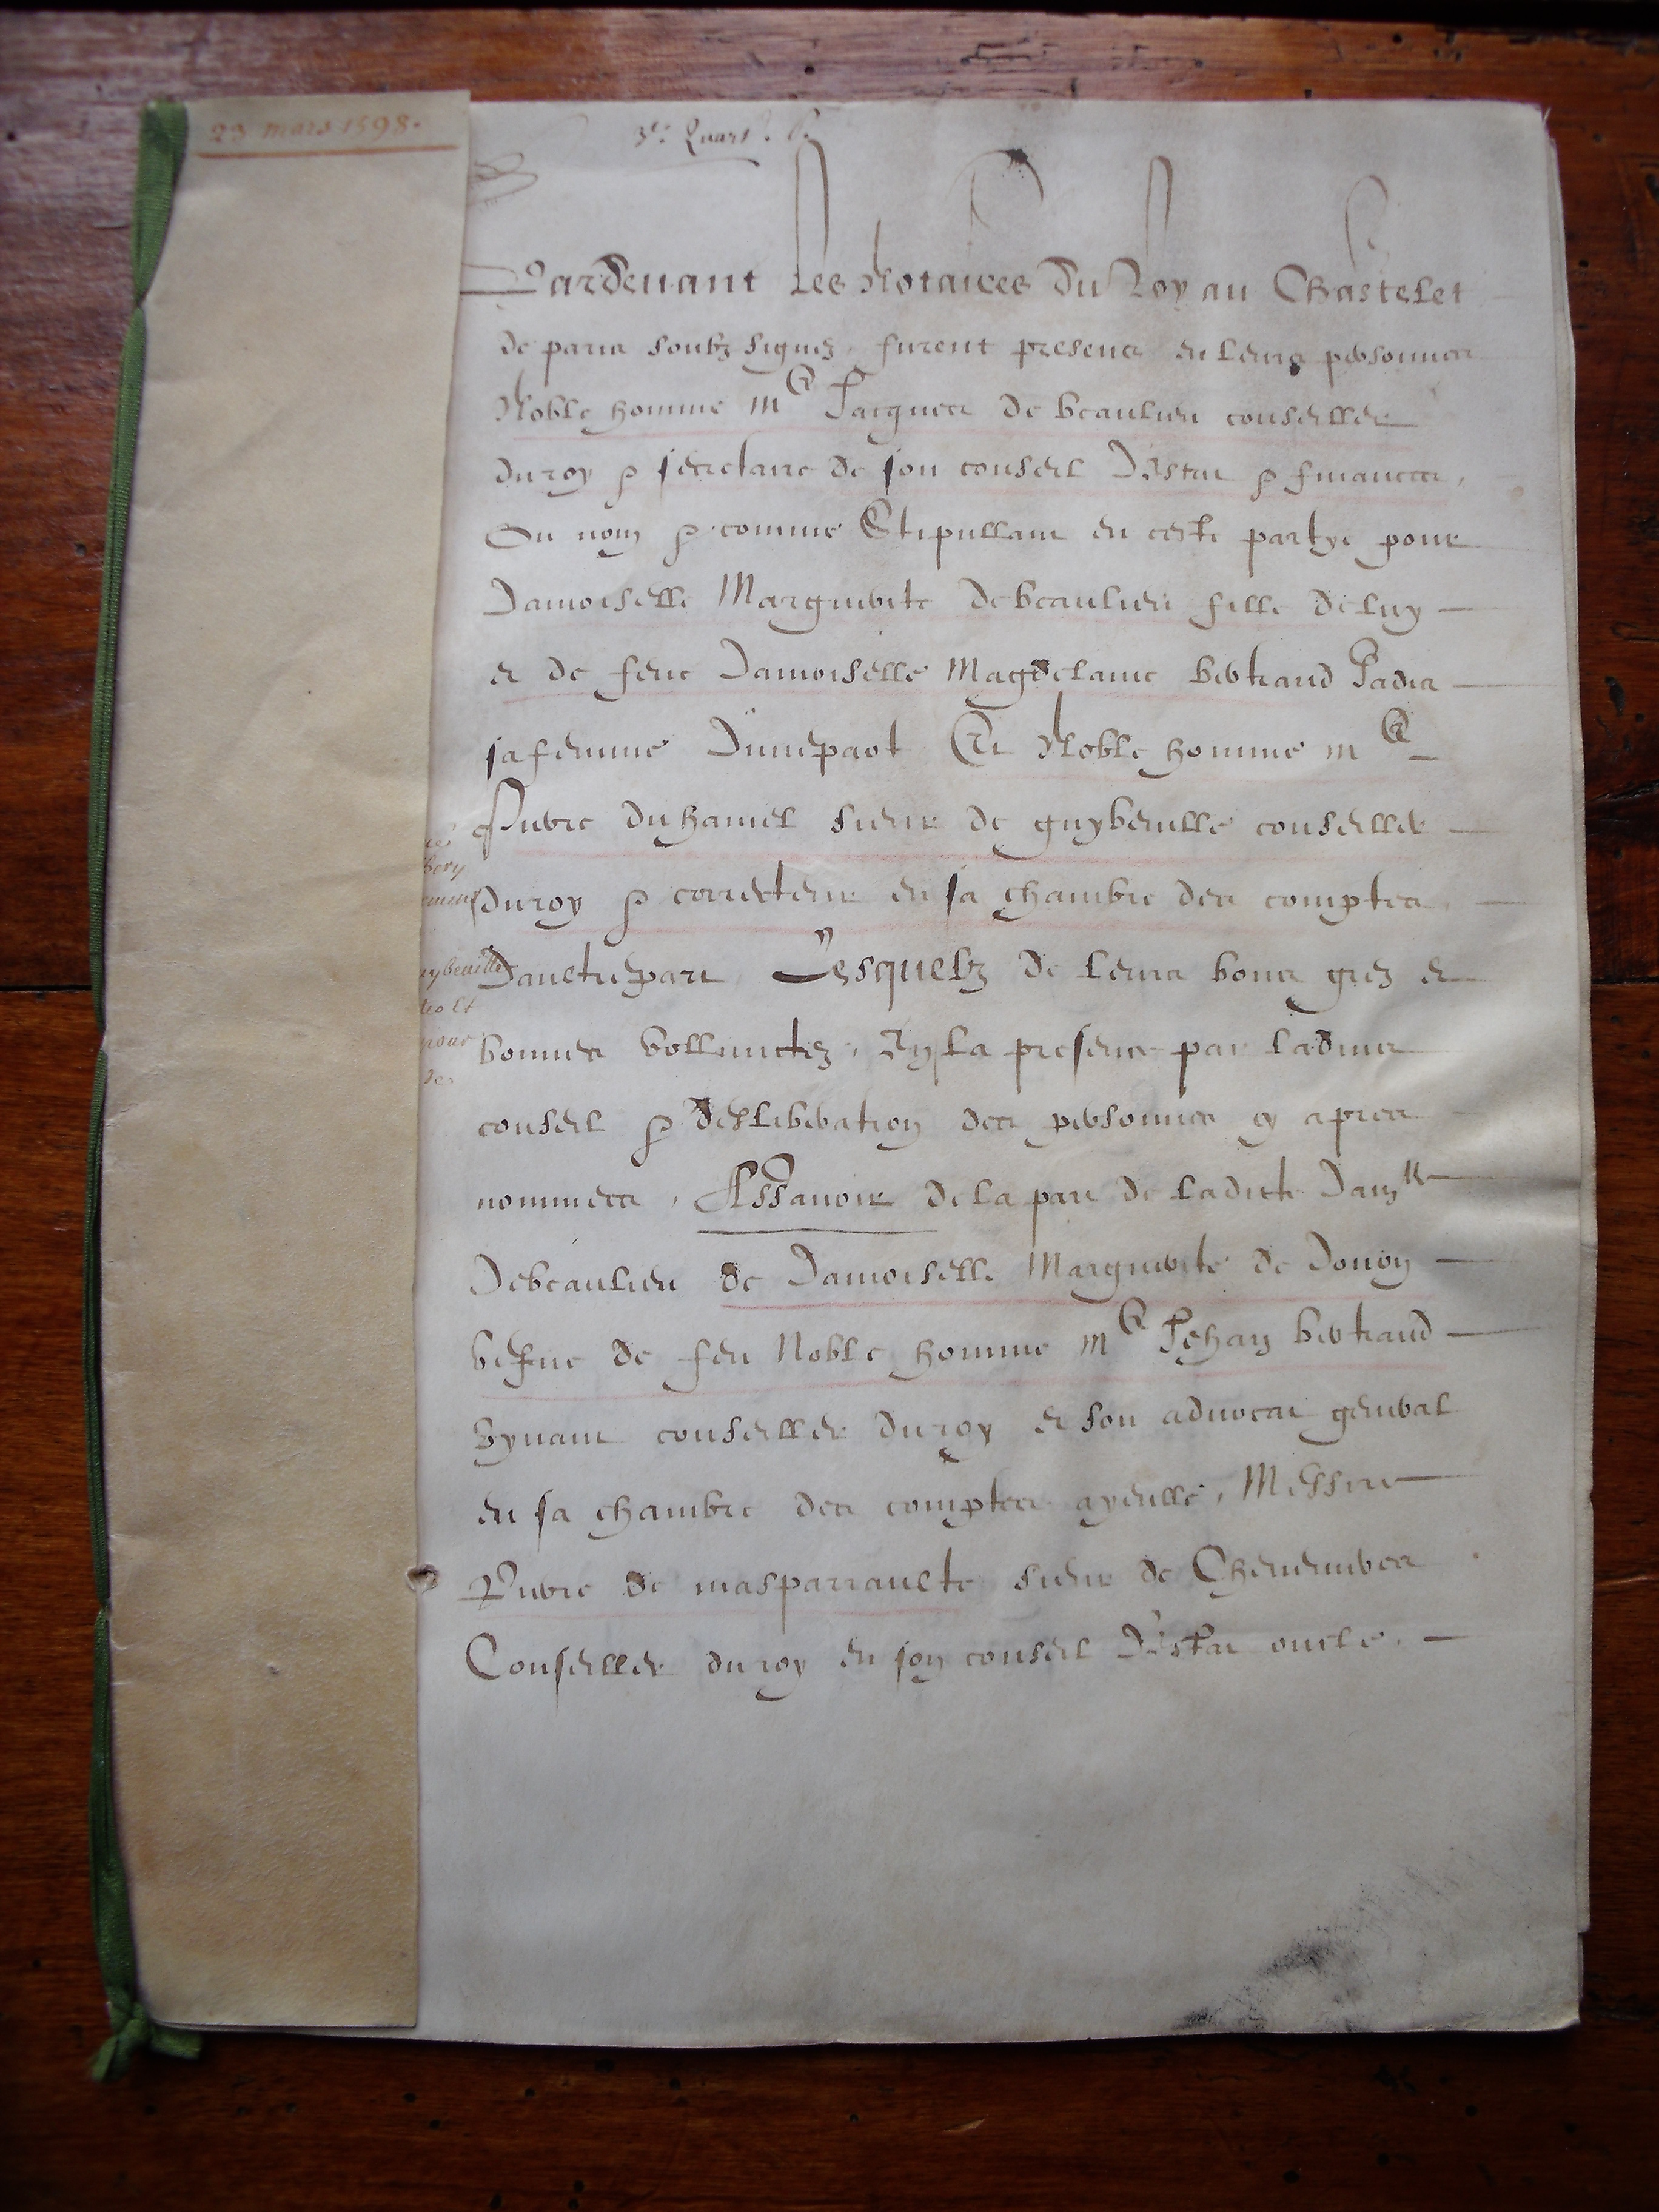 23 mars 1598.
3e. Quart.
Pardevant Les Notaires Du Roy au Chastelet
de paris soubz signez, furent presens en leurs personnes
Noble homme Me Jacques de beaulieu conseiller
du roy & secretaire de son conseil d'estat & finances,
Ou nom & comme Stipullant en ceste partye pour
Damoiselle Marguerite de beaulieu fille de luy
et de feue Damoiselle Magdelaine bertrand Jadis
sa femme D'unepart Et Noble homme Me
Pierre duhamel sieur de guybeuille conseiller
du roy & correcteur en sa chambre des comptes
Daultrepart Lesquelz de leurs bons grez et
bonnes vollunctez, En la presence par l'aduis
conseil & desliberation des personnes cy apres
nommees, Assauoir de la part de ladicte Damlle
De beaulieu de Damoiselle Marguerite de Douon
vefue de feu Noble homme Me Jehan bertrand
vyuant conseiller du roy et son aduocat general
en sa chambre des comptes ayeulle, Messire
Pierre de masparraulte sieur de Cheneuieres
Conseiller du roy en son conseil d'estat oncle.
uybeuille
pour